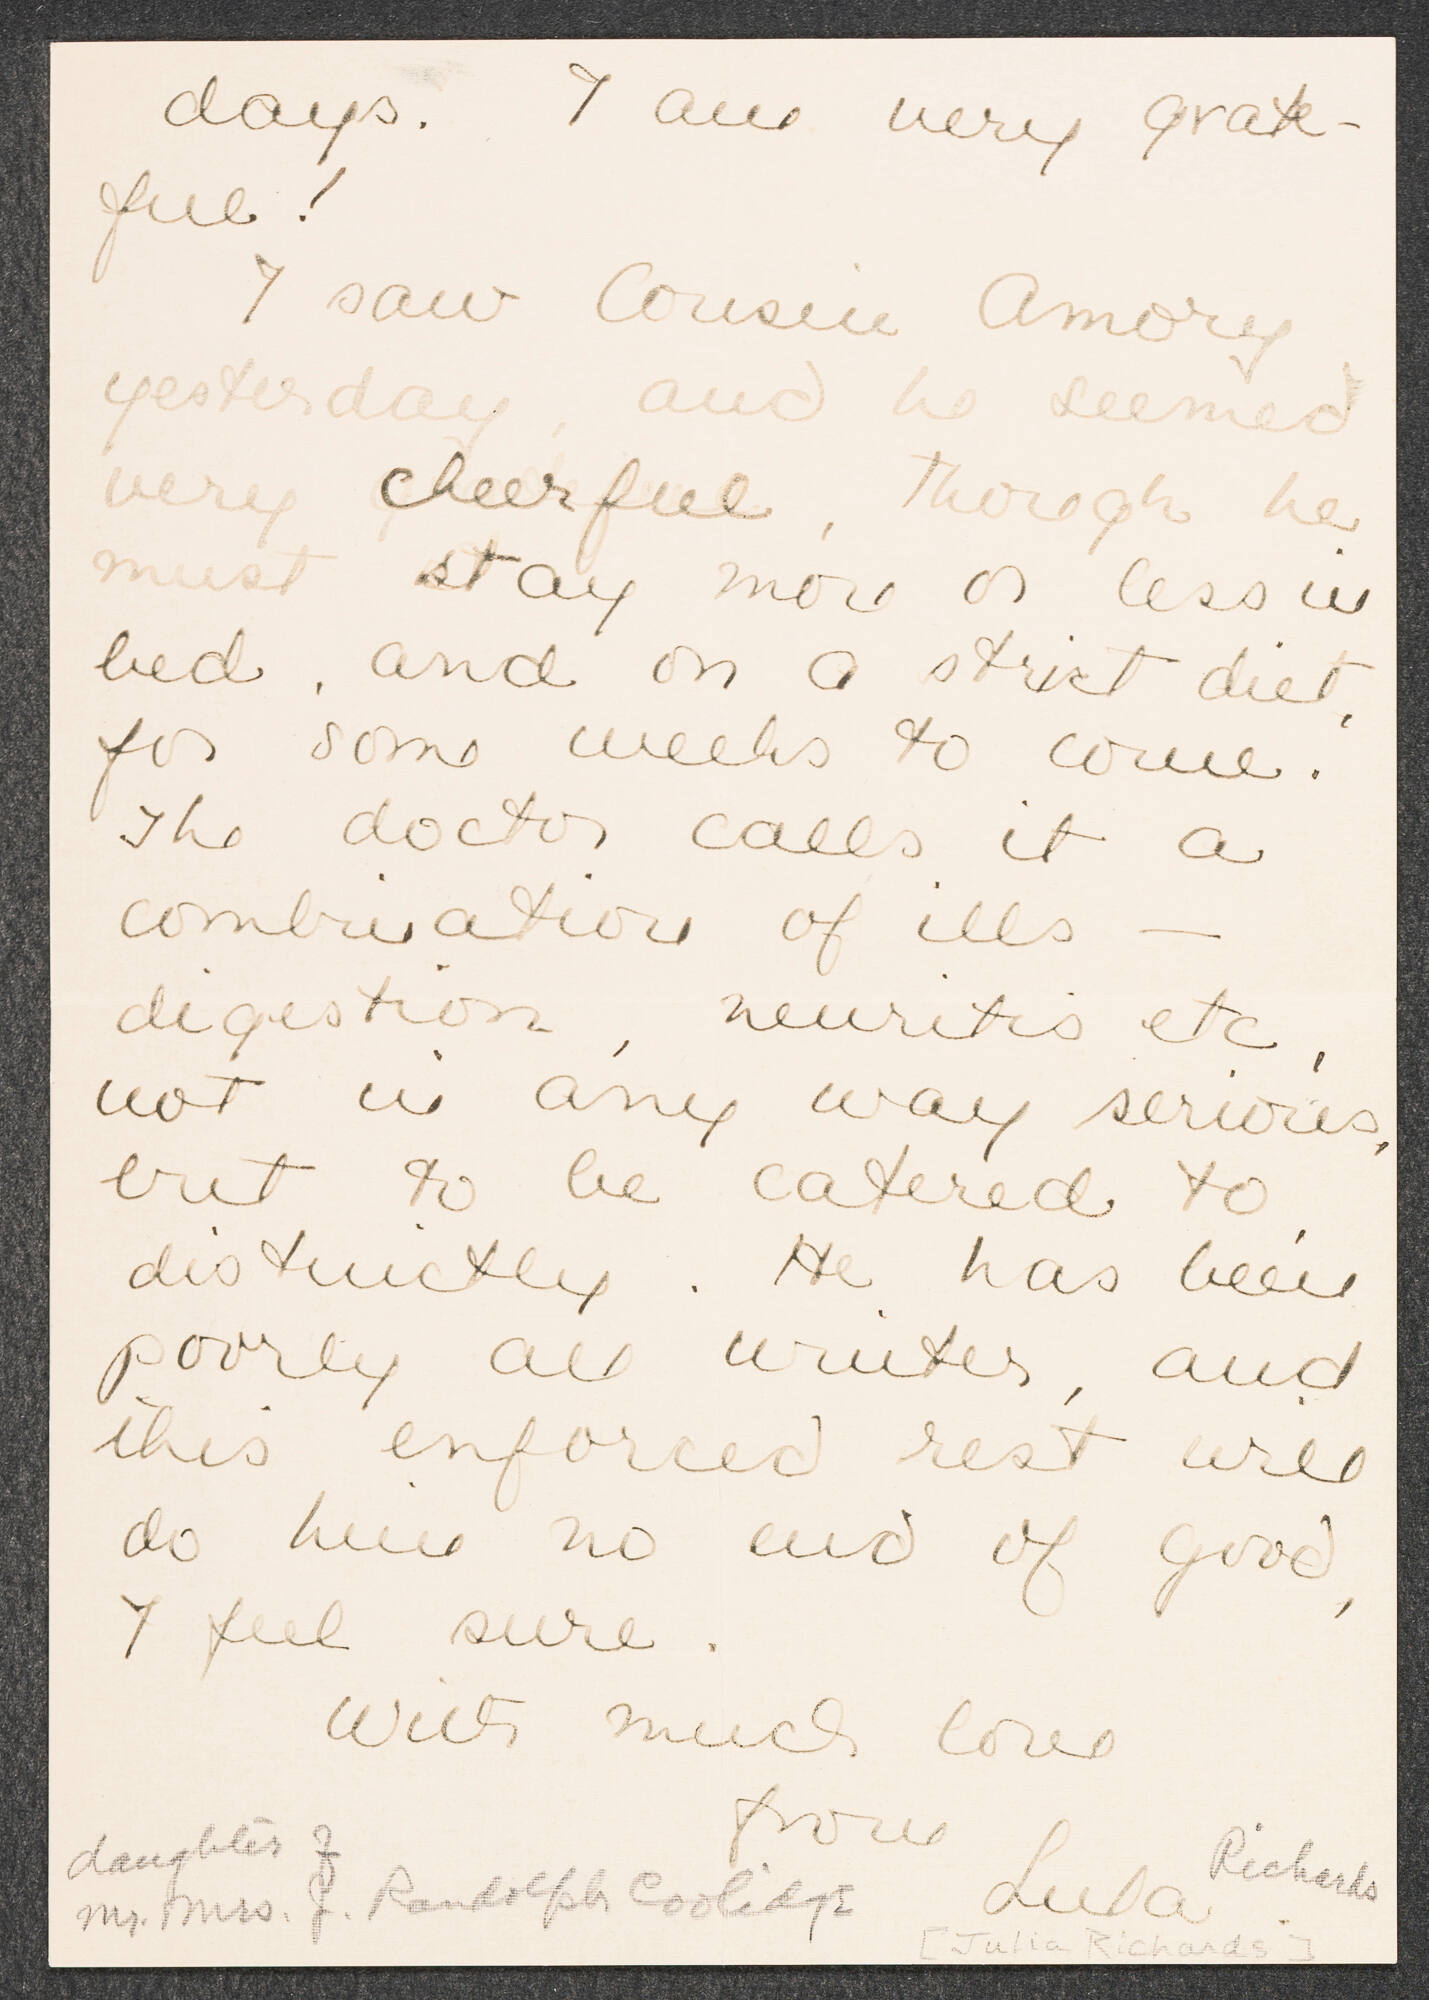 days. I am very grate-
ful!
I saw Cousin Amory
yesterday, and he seemed
very cheerful, though he
must stay more or less in
bed, and on a strict diet,
for some weeks to come.
The doctor calls it a
combination of ills —
digestion, neuritis etc,
not in any way serious,
but to be catered to,
distinctly. He has been
poorly all winter, and
this enforced rest will
do him no end of good,
I feel sure.
With much love
from
Lula Richards
[Julia Richards]
daughter of
Mr. Mrs. J. Randolph Coolidge